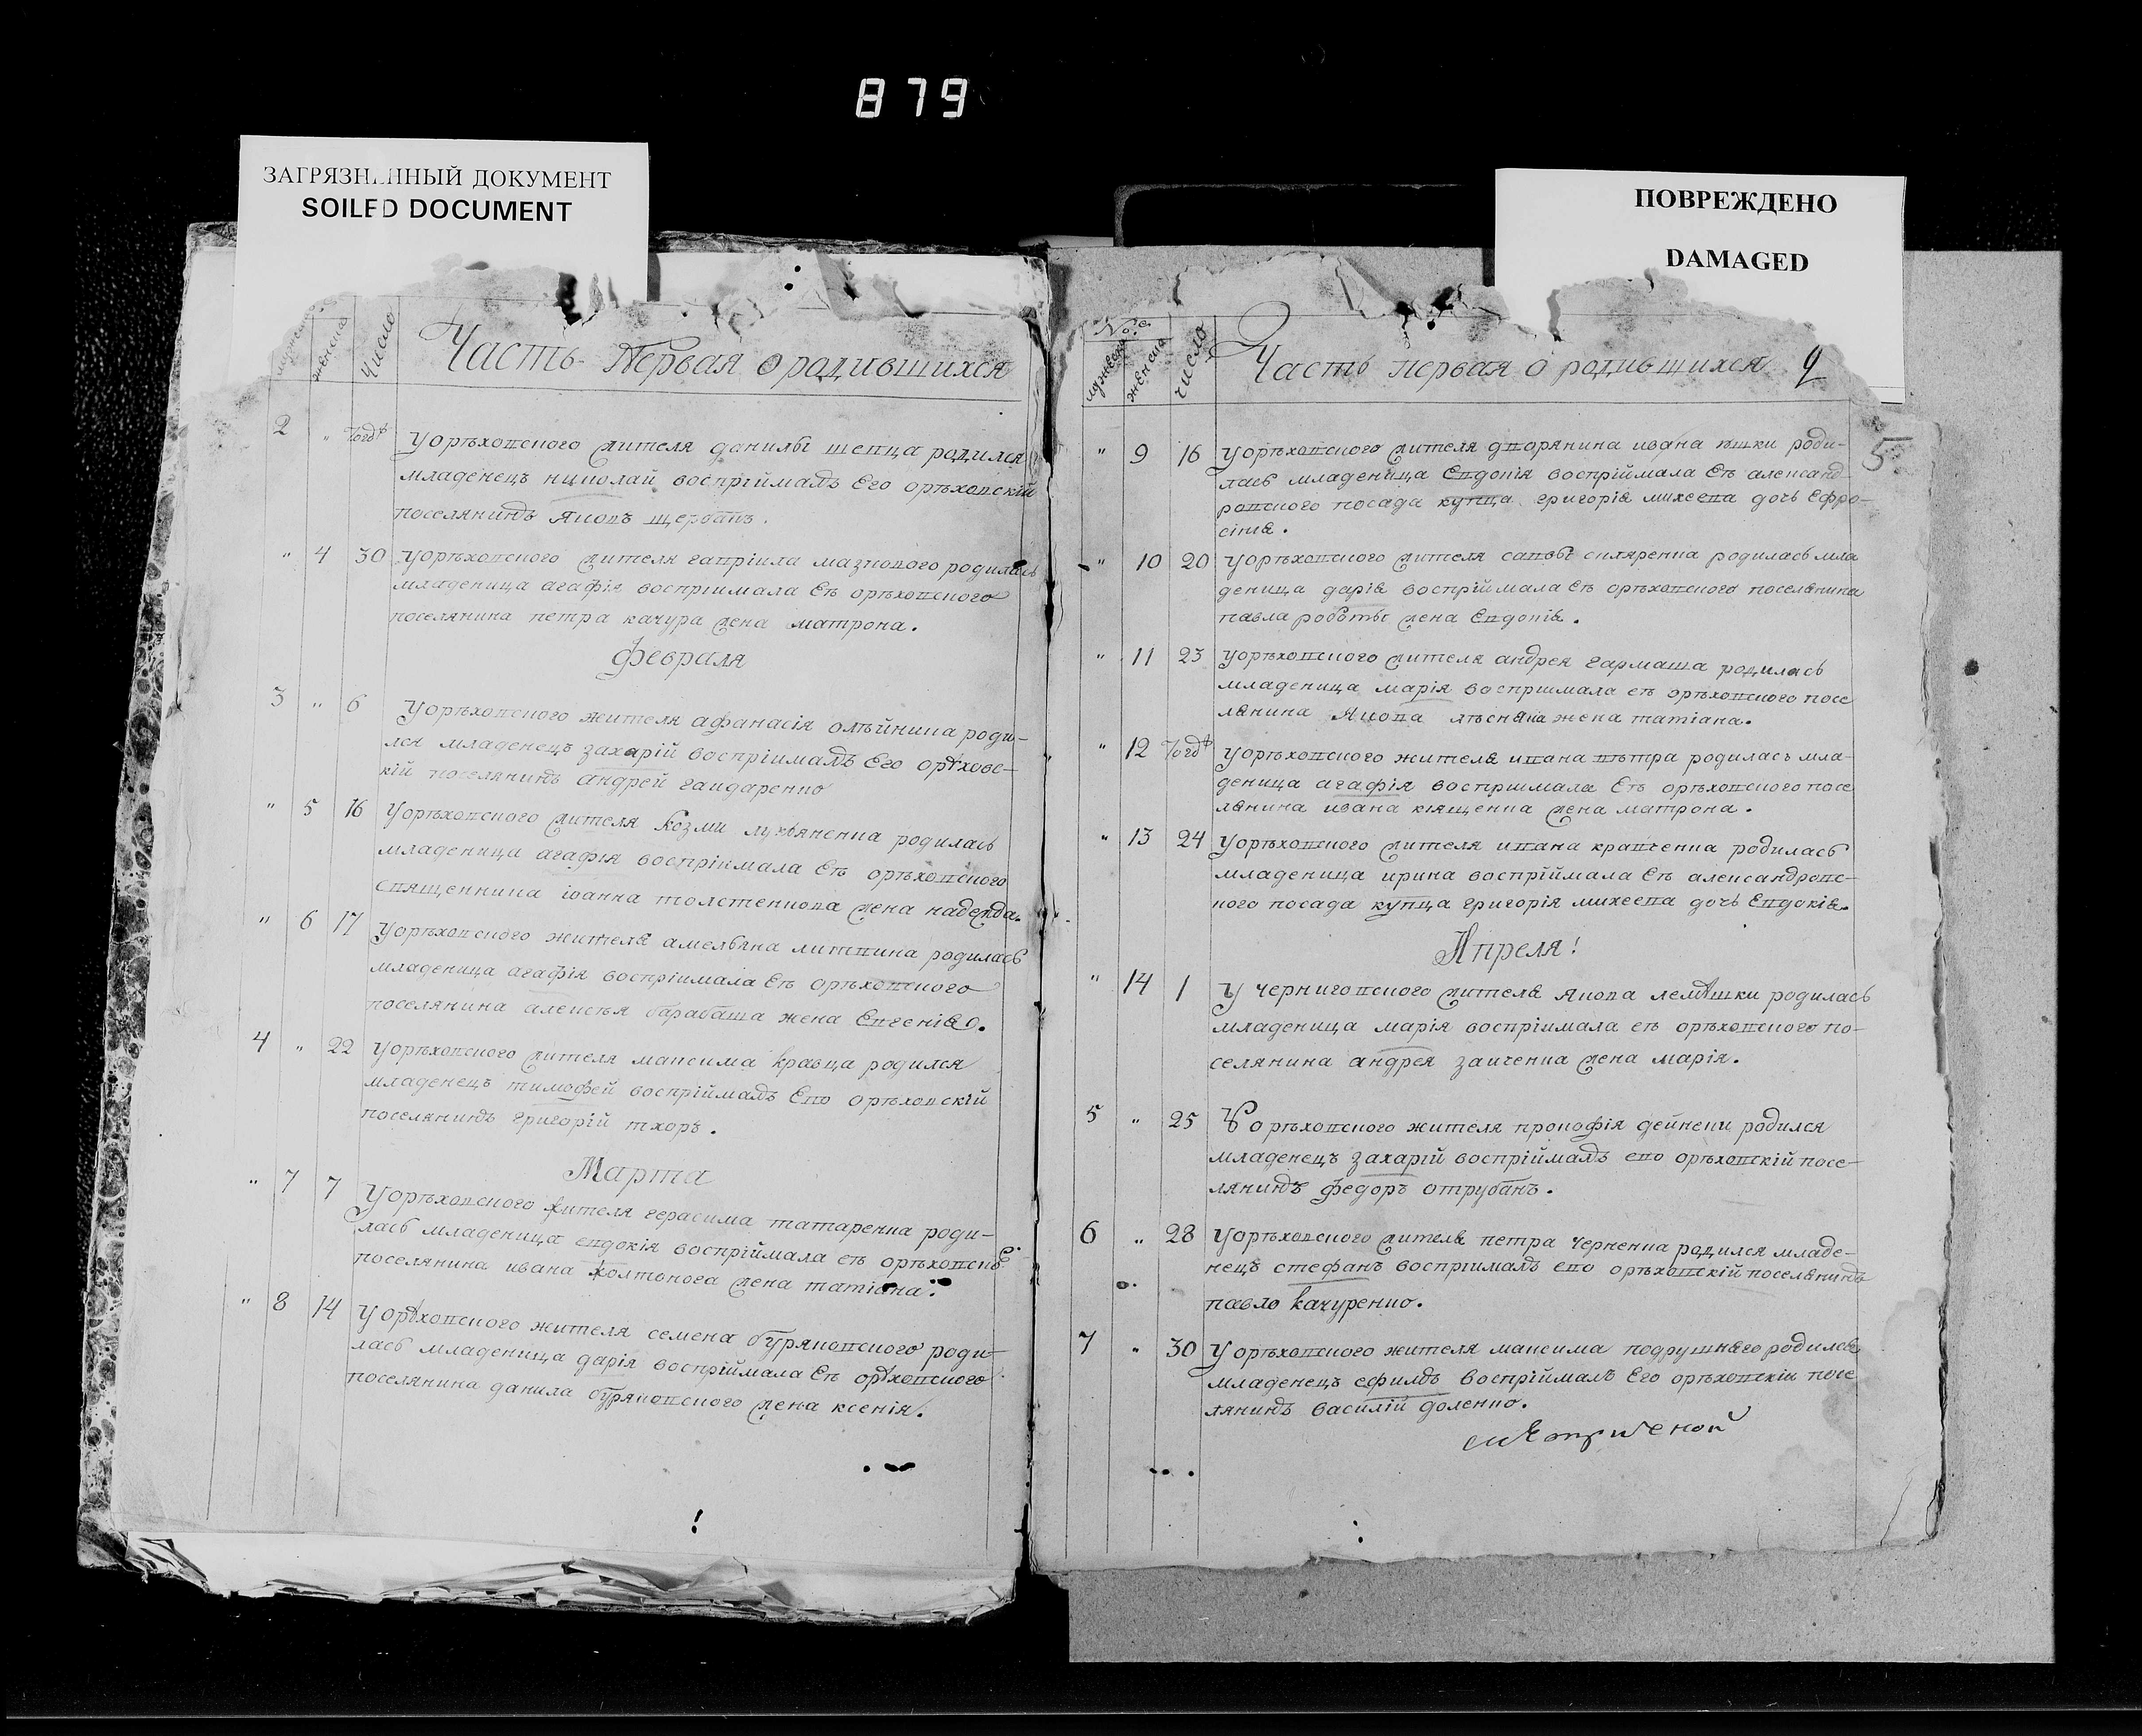 879
ЗАГРЯЗНЕННЫЙ ДОКУМЕНТ
SOILED DOCUMENT
ПОВРЕЖДЕНО
DAMAGED
женска
Число
Часть Первая о родившихся
2 " Тогдъ Уорѣховского жителя данилы шевца родился
младенецъ николай воспріймалъ Его орѣховскій
поселянинъ Яковъ щербакъ.
" 4 30 Уорѣховского жителя гавріила мазнового родилась
младеница агафія воспріимала Еѣ орѣховского
поселянина петра качура жена матрона.
Февраля
3 " 6 Уорѣховского жителя афанасія олѣйника роди-
лся младенецъ захарій воспріималъ Его орѣховс-
кій поселянинъ андрей гайдаренко
" 5 16 Уорѣховского жителя Козми лукьяненка родилась
младеница агафія воспріимала Еѣ орѣховского
священника іоанна толстенкова жена надежда.
" 6 17 Уорѣховского жителя амельяна литвина родилась
младеница агафія воспріимала Еѣ орѣховского
поселянина алексѣя барабаша жена Евгенія.
4 " 22 Уорѣховского жителя максима Кравца родился
младенецъ тимофей воспріймалъ Его орѣховскій
поселянинъ григорій тхоръ.
Марта
" 7 7 Уорѣховского жителя герасима татаренка роди-
лась младеница евдокія воспріймала еѣ орѣховско
поселянина ивана колтонога жена татіана.
" 8 14 Уорѣховского жителя семена буряковского роди-
лась младеница дарія воспріймала Еѣ орѣховского
поселянина данила буряковского жена ксенія.
№:
мужеска женска число
Часть первая о родившихся
5
" 9 16 Уорѣховского жителя дворянина ивана роди-
лась младеница Евдокія воспріймала Еѣ александ-
ровского посада купца григорія михеева дочь Ефро-
сінія.
" 10 20 Уорѣховского жителя саввы скляренка родилась мла
деница дарія воспріймала Еѣ орѣховского поселянина
павла роботы жена Евдокія.
" 11 23 Уорѣховского жителя андрея гармаша родилась
младеница марія воспріимала еѣ орѣховского посе
лянина Якова лѣсняка жена татіана.
" 12 Тогдъ Уорѣховского жителя ивана вѣтра родилась мла-
деница агафія воспріимала Еѣ орѣховского посе
лянина ивана кіященка жена матрона.
" 13 24 Уорѣховского жителя ивана кравченка родилась
младеница ирина воспріймала Еѣ александровс-
кого посада купца григорія михеева дочь Евдокія.
Апреля!
" 14 1 У черниговского жителя Якова лемѣшки родилась
младеница марія воспріимала еѣ орѣховского по-
селянина андрея заиченка жена марія.
5 " 25 Уорѣховского жителя прокофія дейнеки родился
младенецъ захарій воспріймалъ его орѣховскій посе-
лянинъ федоръ отрубанъ.
6 " 28 Уорѣховского жителя петра черненка родился младе-
нецъ стефанъ воспріималъ его орѣховскій поселянинъ
павло Качуренко.
7 " 30 Уорѣховского жителя максима подрушняго родился
младенецъ ефилъ воспріймалъ Его орѣховскій посе
лянинъ василій доленко.